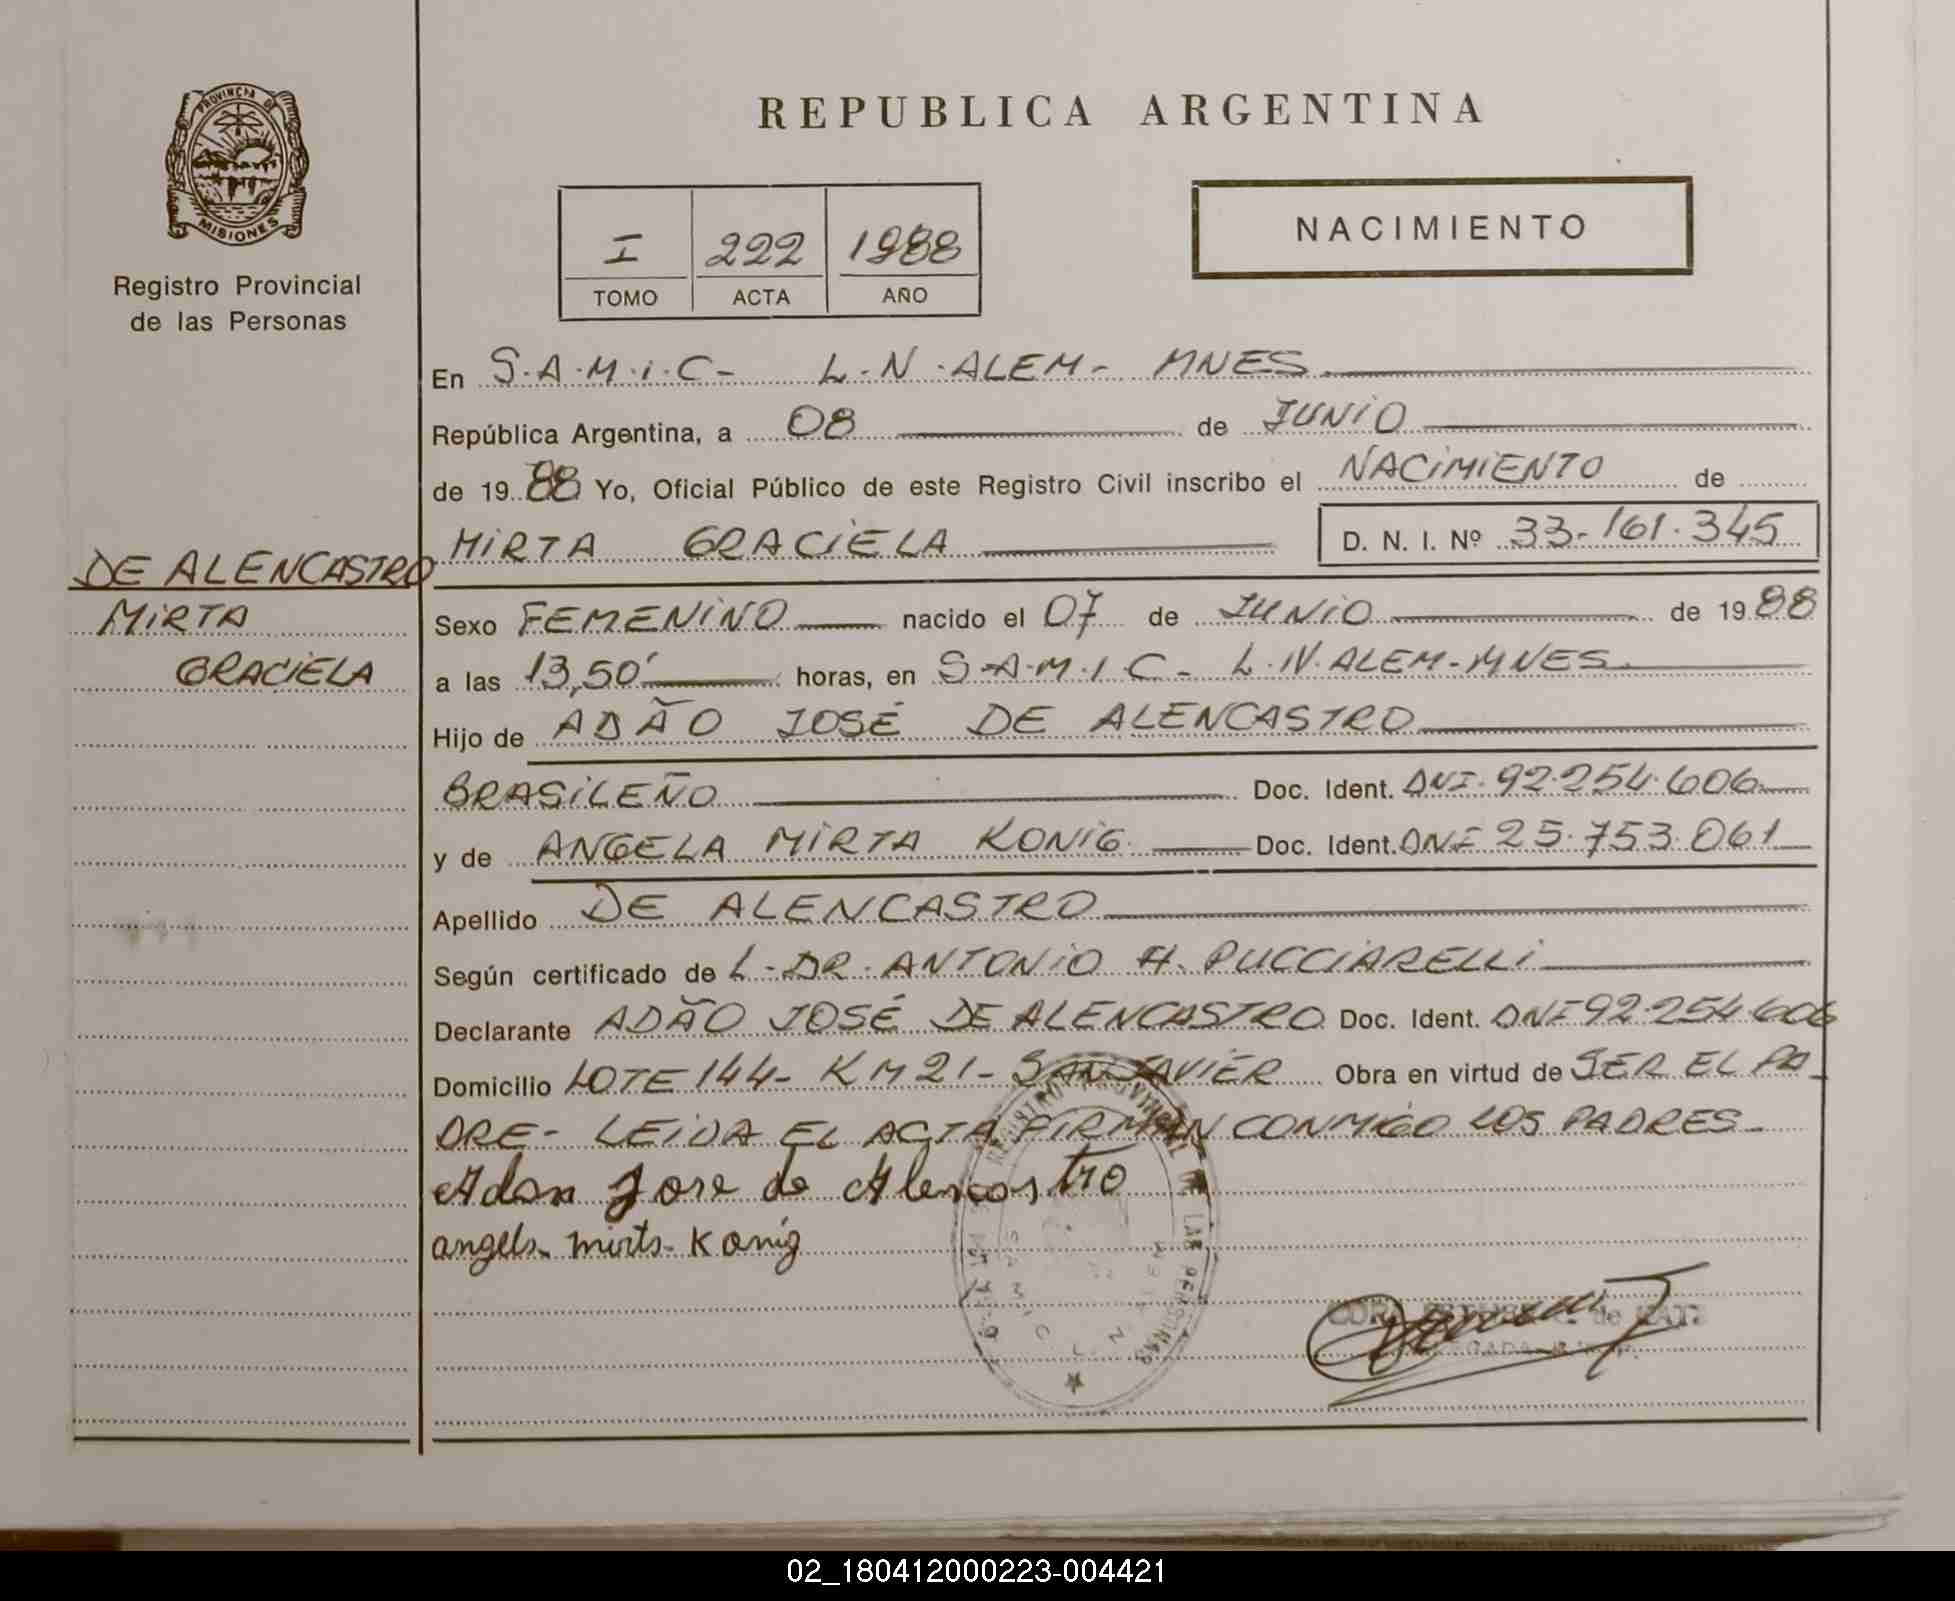 PROVINCIA DE
MISIONES
Registro Provincial
de las Personas
REPUBLICA ARGENTINA
I 222 1988
TOMO ACTA AÑO
NACIMIENTO
En S.A.M.i.C- L.N.ALEM- MNES
República Argentina, a 08 de JUNiO
de 19 88 Yo, Oficial Público de este Registro Civil inscribo el NACiMiENTO de
MiRTA GRACiELA D. N. I. Nº 33-161.345
DE ALENCASTRO
MiRTA
GRACiELA
Sexo FEMENiNO nacido el 07 de JUNiO de 19 88
a las 13,50' horas, en S-A-M.I.C- L.N.ALEM-MNES
Hijo de ADÃO JOSÉ DE ALENCASTRO
BRASiLEÑO Doc. Ident. DNI-92.254.606
y de ANGELA MiRTA KONiG Doc. Ident. DNI 25.753.061
Apellido DE ALENCASTRO
Según certificado de L-DR.ANTONiO H. PUCCiARELLi
Declarante ADÃO JOSÉ DE ALENCASTRO Doc. Ident. DNI 92.254.606
Domicilio LOTE 144- KM 21- SAN JAViER Obra en virtud de SER EL PA-
DRE- LEiDA EL ACTA FiRMAN CONMiGO LOS PADRES-
Adan Jose de Alencastro
angela mirta Konig
REGISTRO PROVINCIAL DE LAS PERSONAS
02_180412000223-004421